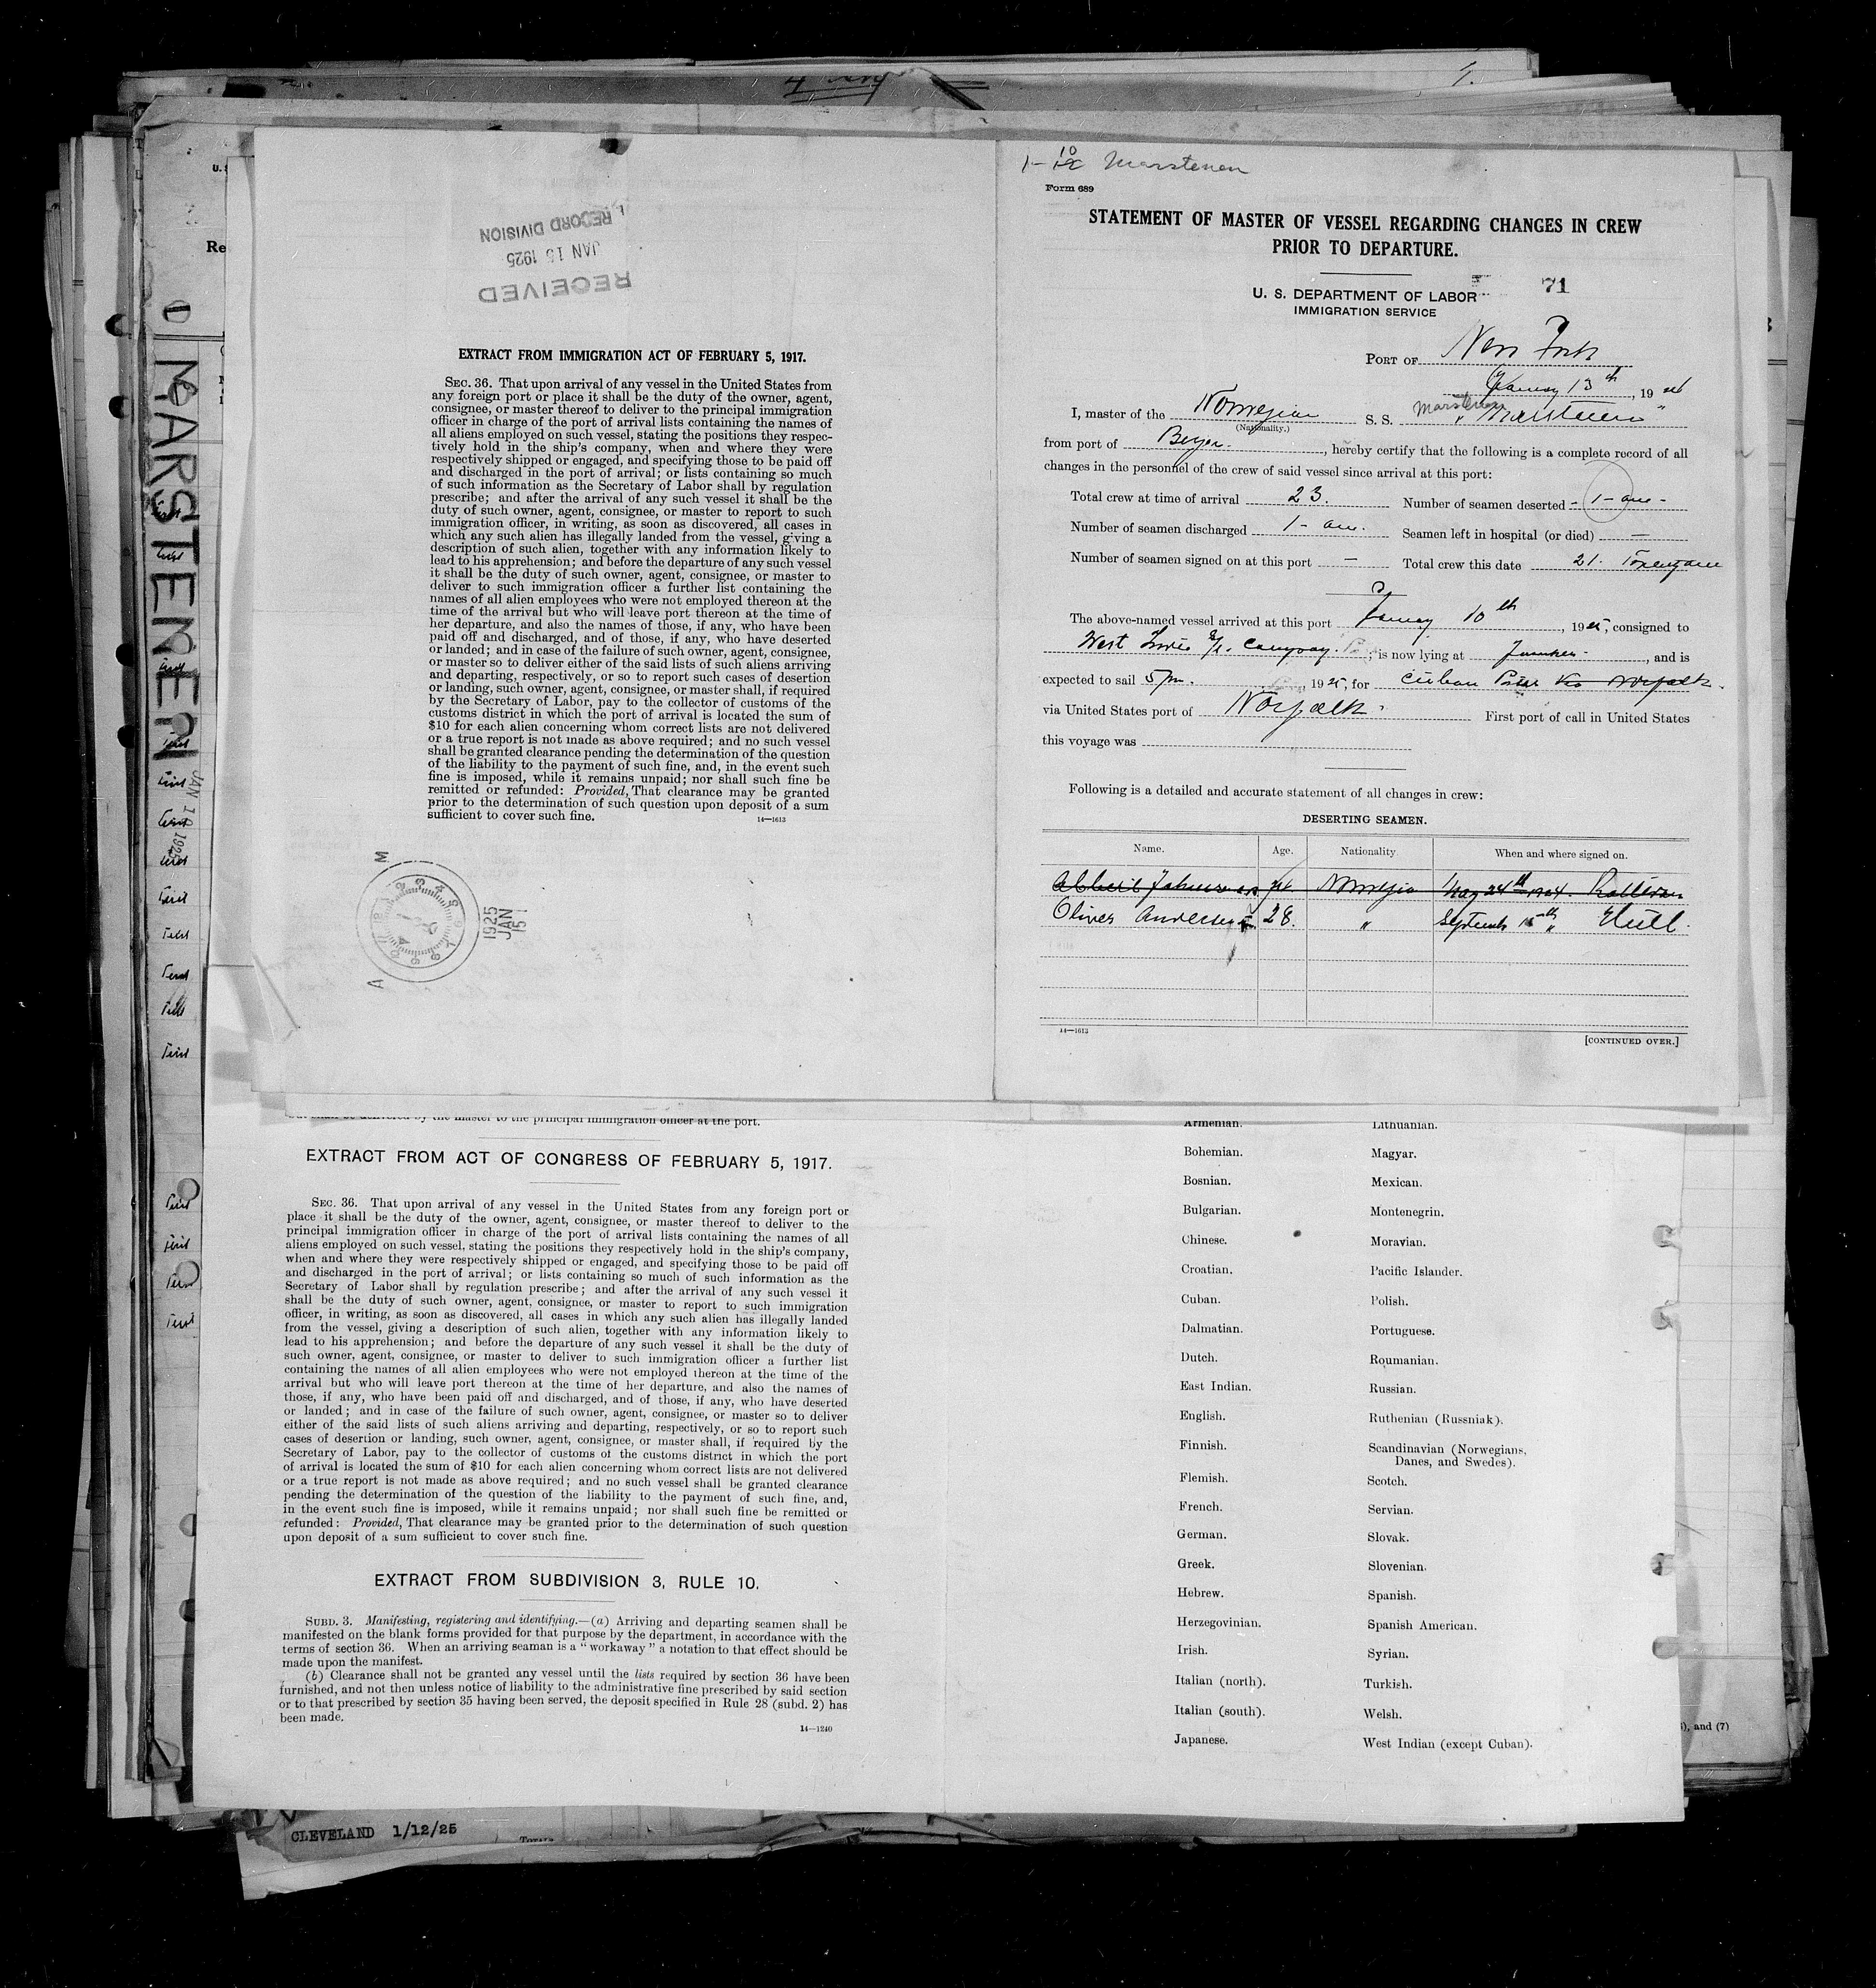 1-10 Marstenen
RECEIVED
JAN 15 1925
RECORD DIVISION
EXTRACT FROM IMMIGRATION ACT OF FEBRUARY 5, 1917.
SEC. 36. That upon arrival of any vessel in the United States from
any foreign port or place it shall be the duty of the owner, agent,
consignee, or master thereof to deliver to the principal immigration
officer in charge of the port of arrival lists containing the names of
all aliens employed on such vessel, stating the positions they respec-
tively hold in the ship's company, when and where they were
respectively shipped or engaged, and specifying those to be paid off
and discharged in the port of arrival; or lists containing so much
of such information as the Secretary of Labor shall by regulation
prescribe; and after the arrival of any such vessel it shall be the
duty of such owner, agent, consignee, or master to report to such
immigration officer, in writing, as soon as discovered, all cases in
which any such alien has illegally landed from the vessel, giving a
description of such alien, together with any information likely to
lead to his apprehension; and before the departure of any such vessel
it shall be the duty of such owner, agent, consignee, or master to
deliver to such immigration officer a further list containing the
names of all alien employees who were not employed thereon at the
time of the arrival but who will leave port thereon at the time of
her departure, and also the names of those, if any, who have been
paid off and discharged, and of those, if any, who have deserted
or landed; and in case of the failure of such owner, agent, consignee,
or master so to deliver either of the said lists of such aliens arriving
and departing, respectively, or so to report such cases of desertion
or landing, such owner, agent, consignee, or master shall, if required
by the Secretary of Labor, pay to the collector of customs of the
customs district in which the port of arrival is located the sum of
$10 for each alien concerning whom correct lists are not delivered
or a true report is not made as above required; and no such vessel
shall be granted clearance pending the determination of the question
of the liability to the payment of such fine, and, in the event such
fine is imposed, while it remains unpaid; nor shall such fine be
remitted or refunded: Provided, That clearance may be granted
prior to the determination of such question upon deposit of a sum
sufficient to cover such fine.
14—1613
1925
JAN
15
Form 689
STATEMENT OF MASTER OF VESSEL REGARDING CHANGES IN CREW
PRIOR TO DEPARTURE.
71
U. S. DEPARTMENT OF LABOR
IMMIGRATION SERVICE
PORT OF New York
January 13th, 19
Marstenen
I, master of the Norwegian S. S. "Marstenen"
(Nationality.)
from port of Bergen, hereby certify that the following is a complete record of all
changes in the personnel of the crew of said vessel since arrival at this port:
Total crew at time of arrival 23. Number of seamen deserted - 1 - one -
Number of seamen discharged 1 - one. Seamen left in hospital (or died) —
Number of seamen signed on at this port — Total crew this date 21.
The above-named vessel arrived at this port January 10th, 1925, consigned to
West Company, is now lying at , and is
expected to sail 5 pm. 1925, for Cuban Port via Norfolk
via United States port of Norfolk. First port of call in United States
this voyage was
Following is a detailed and accurate statement of all changes in crew:
DESERTING SEAMEN.
Name. Age. Nationality. When and where signed on.
Norwegia May 24th 1924.
Oliver Andersen 28. " September 15th " Hull.
14—1613
[CONTINUED OVER.]
MARSTENEN
JAN 10 1925
but shall be delivered by the master to the principal immigration officer at the port.
EXTRACT FROM ACT OF CONGRESS OF FEBRUARY 5, 1917.
SEC. 36. That upon arrival of any vessel in the United States from any foreign port or
place it shall be the duty of the owner, agent, consignee, or master thereof to deliver to the
principal immigration officer in charge of the port of arrival lists containing the names of all
aliens employed on such vessel, stating the positions they respectively hold in the ship's company,
when and where they were respectively shipped or engaged, and specifying those to be paid off
and discharged in the port of arrival; or lists containing so much of such information as the
Secretary of Labor shall by regulation prescribe; and after the arrival of any such vessel it
shall be the duty of such owner, agent, consignee, or master to report to such immigration
officer, in writing, as soon as discovered, all cases in which any such alien has illegally landed
from the vessel, giving a description of such alien, together with any information likely to
lead to his apprehension; and before the departure of any such vessel it shall be the duty of
such owner, agent, consignee, or master to deliver to such immigration officer a further list
containing the names of all alien employees who were not employed thereon at the time of the
arrival but who will leave port thereon at the time of her departure, and also the names of
those, if any, who have been paid off and discharged, and of those, if any, who have deserted
or landed; and in case of the failure of such owner, agent, consignee, or master so to deliver
either of the said lists of such aliens arriving and departing, respectively, or so to report such
cases of desertion or landing, such owner, agent, consignee, or master shall, if required by the
Secretary of Labor, pay to the collector of customs of the customs district in which the port
of arrival is located the sum of $10 for each alien concerning whom correct lists are not delivered
or a true report is not made as above required; and no such vessel shall be granted clearance
pending the determination of the question of the liability to the payment of such fine, and,
in the event such fine is imposed, while it remains unpaid; nor shall such fine be remitted or
refunded: Provided, That clearance may be granted prior to the determination of such question
upon deposit of a sum sufficient to cover such fine.
EXTRACT FROM SUBDIVISION 3, RULE 10.
SUBD. 3. Manifesting, registering and identifying.—(a) Arriving and departing seamen shall be
manifested on the blank forms provided for that purpose by the department, in accordance with the
terms of section 36. When an arriving seaman is a "workaway" a notation to that effect should be
made upon the manifest.
(b) Clearance shall not be granted any vessel until the lists required by section 36 have been
furnished, and not then unless notice of liability to the administrative fine prescribed by said section
or to that prescribed by section 35 having been served, the deposit specified in Rule 28 (subd. 2) has
been made.
14—1240
Armenian. Lithuanian.
Bohemian. Magyar.
Bosnian. Mexican.
Bulgarian. Montenegrin.
Chinese. Moravian.
Croatian. Pacific Islander.
Cuban. Polish.
Dalmatian. Portuguese.
Dutch. Roumanian.
East Indian. Russian.
English. Ruthenian (Russniak).
Finnish. Scandinavian (Norwegians,
Danes, and Swedes).
Flemish. Scotch.
French. Servian.
German. Slovak.
Greek. Slovenian.
Hebrew. Spanish.
Herzegovinian. Spanish American.
Irish. Syrian.
Italian (north). Turkish.
Italian (south). Welsh.
Japanese. West Indian (except Cuban).
), and (7)
CLEVELAND 1/12/25